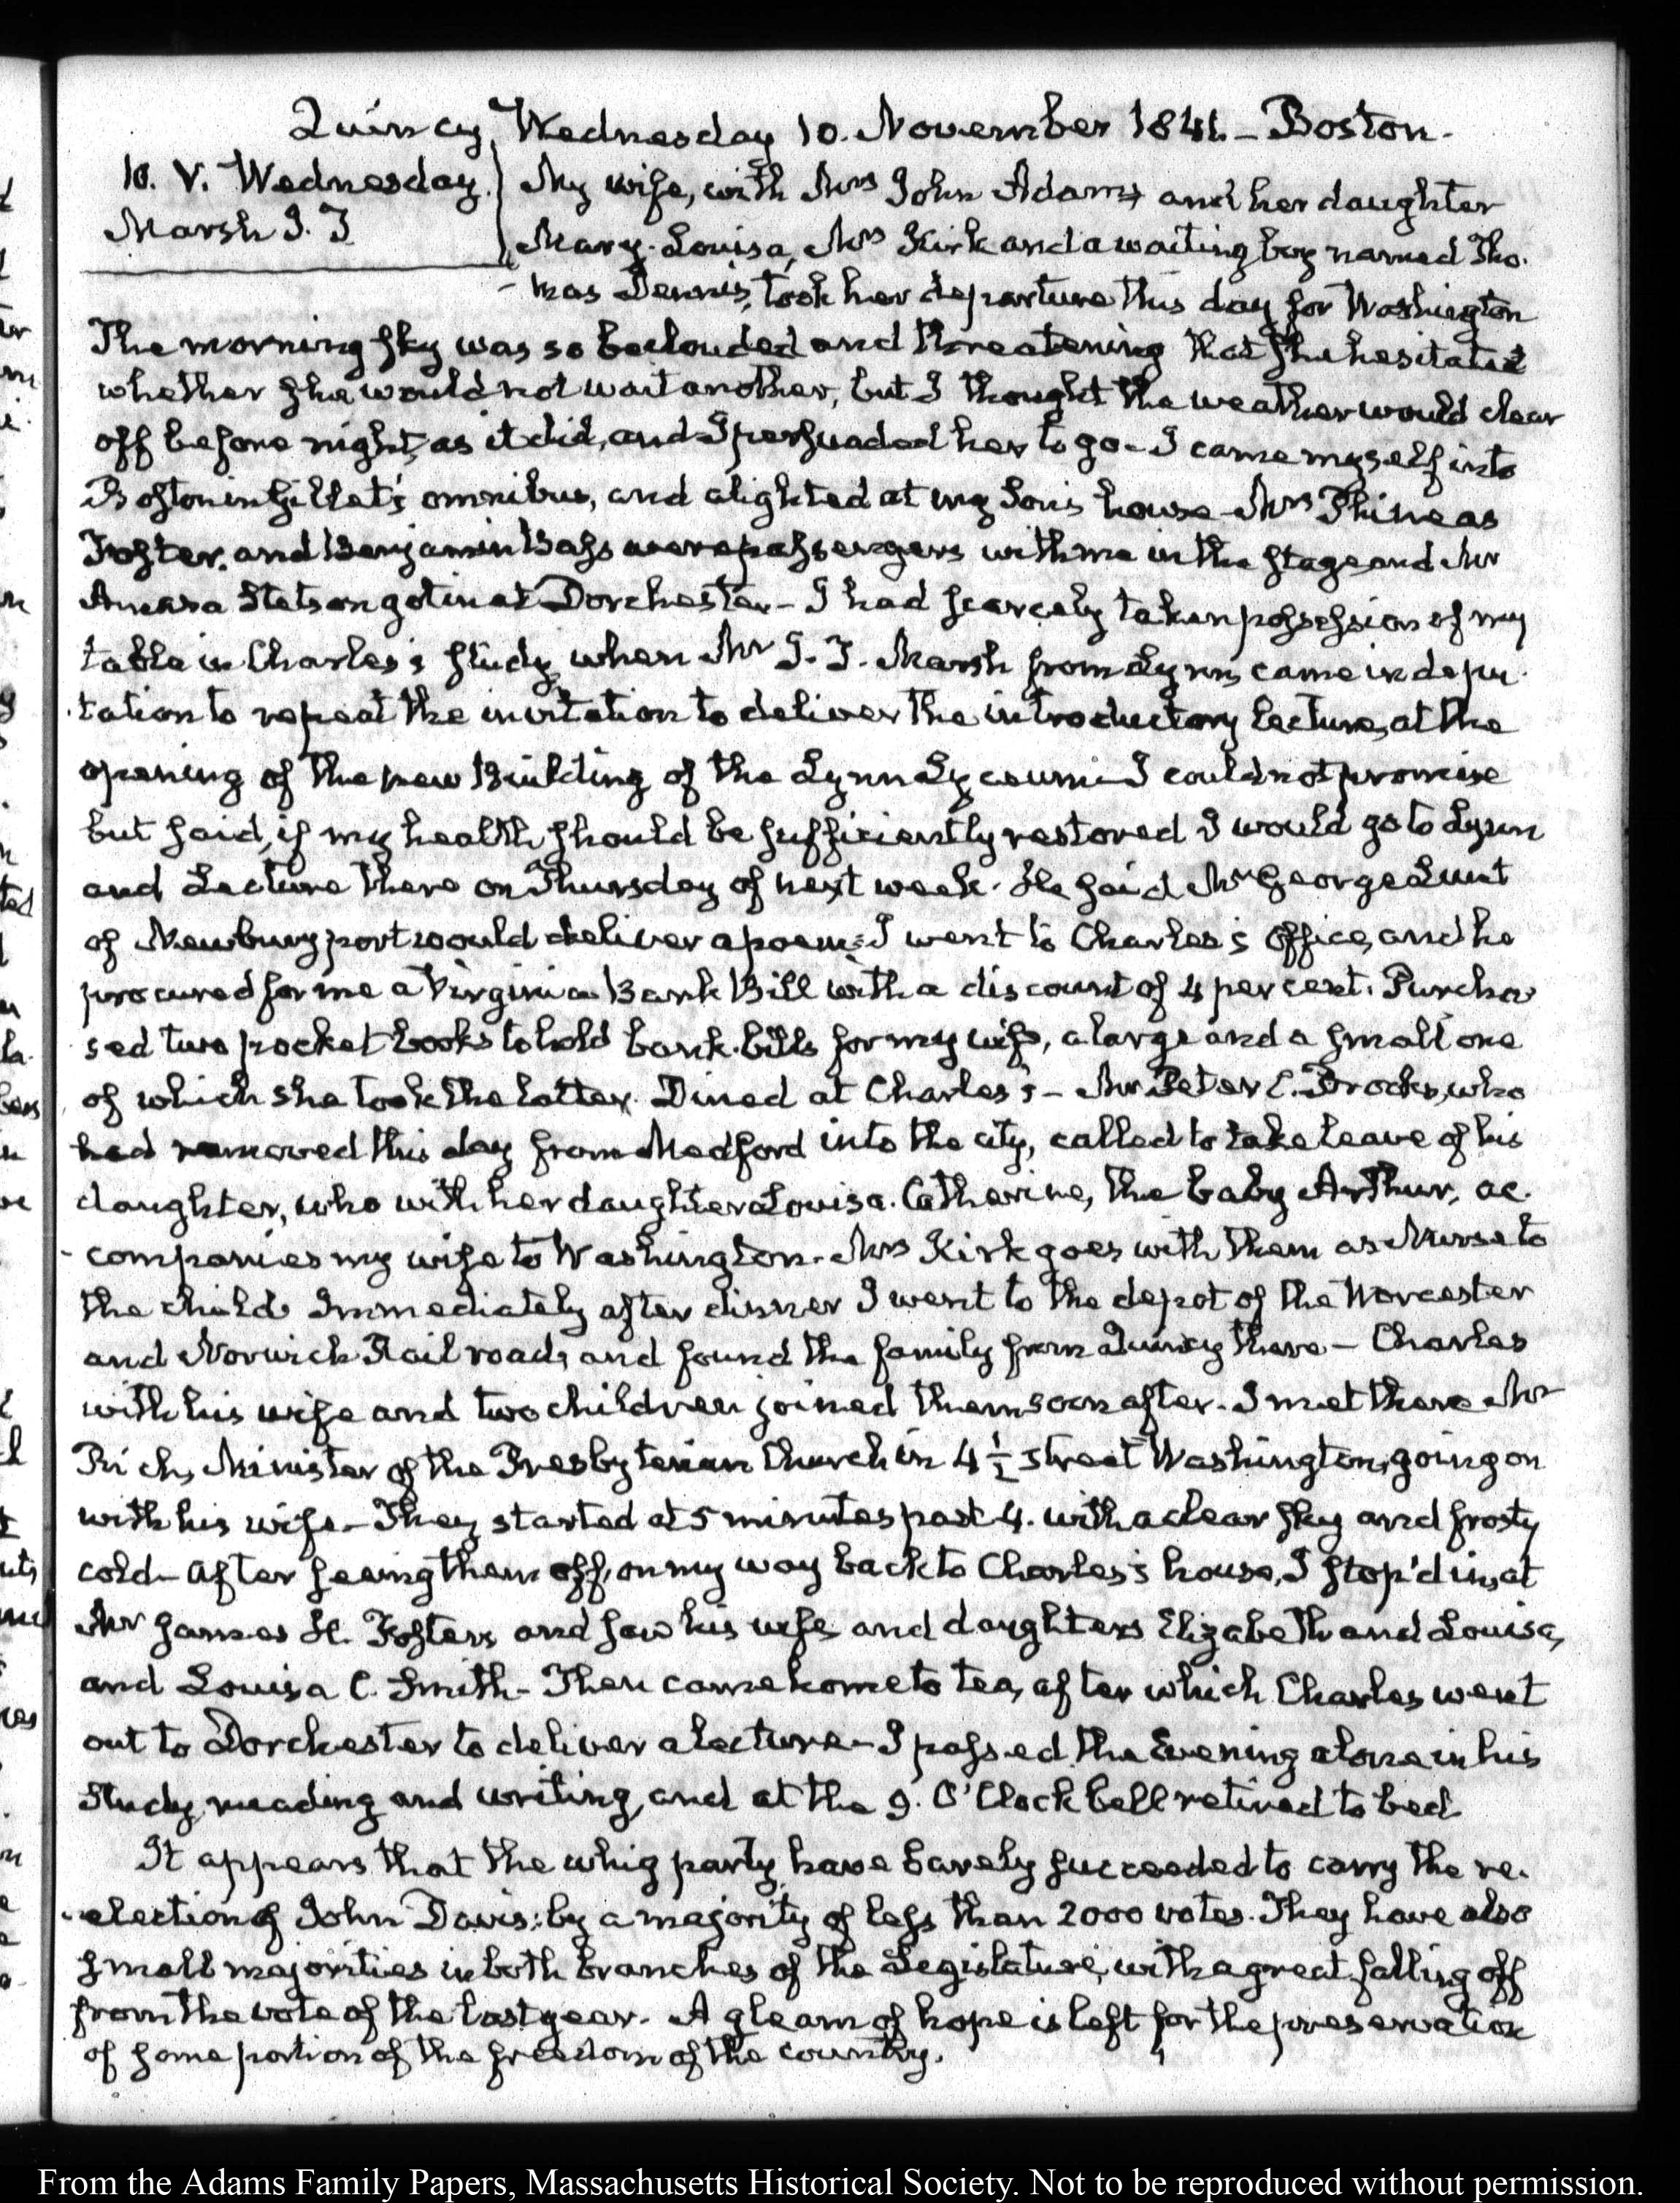 Quincy, Wednesday 10. November 1841. – Boston.
10. V. Wednesday.
Marsh I. I
My wife, with Mrs John Adams and her daughter
Mary-Louisa, Mrs Kirk and a waiting boy named Tho-
-mas Dennis, took her departure this day for Washington
The morning sky was so beclouded and threatening that she hesitated
whether she would not wait another, but I thought the weather would clear
off before night, as it did, and I persuaded her to go. I came myself into
Boston in Gillet's omnibus, and alighted at my Son's house. Mrs Phineas
Foster, and Benjamin Bass were passengers with me in the stage and Mr
Amasa Stetson got in at Dorchester – I had scarcely taken possession of my
table in Charles's study, when Mr I. I. Marsh from Lynn, came in depu-
-tation to repeat the invitation to deliver the introductory Lecture, at the
opening of the new Building of the Lynn Lyceum – I could not promise
but said, if my health should be sufficiently restored I would go to Lynn
and Lecture there on Thursday of next week. He said Mr George Lunt
of Newburyport would deliver a poem. I went to Charles's Office, and he
procured for me a Virginia Bank Bill with a discount of 4 per cent. Purcha-
sed two pocket books to hold bank-bills for my wife, a large and a small one
of which she took the latter. Dined at Charles's – Mr Peter C. Brooks, who
had removed this day from Medford into the city, called to take leave of his
daughter, who with her daughter Louisa-Catherine, the baby Arthur, ac-
-companies my wife to Washington. Mrs Kirk goes with them as Nurse to
the child. Immediately after dinner I went to the depot of the Worcester
and Norwich Rail roads and found the family from Quincy there – Charles
with his wife and two children joined them soon after. I met there Mr
Rich, Minister of the Presbyterian Church in 4 1/2 street Washington, going on
with his wife – They started at 5 minutes past 4. with a clear sky and frosty
cold – After seeing them off, on my way back to Charles's house, I stop'd in, at
Mr James H. Fosters and saw his wife and daughters Elizabeth and Louisa,
and Louisa C. Smith – Then came home to tea, after which Charles went
out to Dorchester to deliver a lecture – I passed the Evening alone in his
Study, reading and writing, and at the 9. O'Clock bell retired to bed
It appears that the whig party have barely succeeded to carry the re-
-election of John Davis: by a majority of less than 2000 votes. They have also
small majorities in both branches of the Legislature, with a great falling off
from the vote of the last year. A gleam of hope is left for the preservation
of some portion of the freedom of the country.
From the Adams Family Papers, Massachusetts Historical Society. Not to be reproduced without permission.